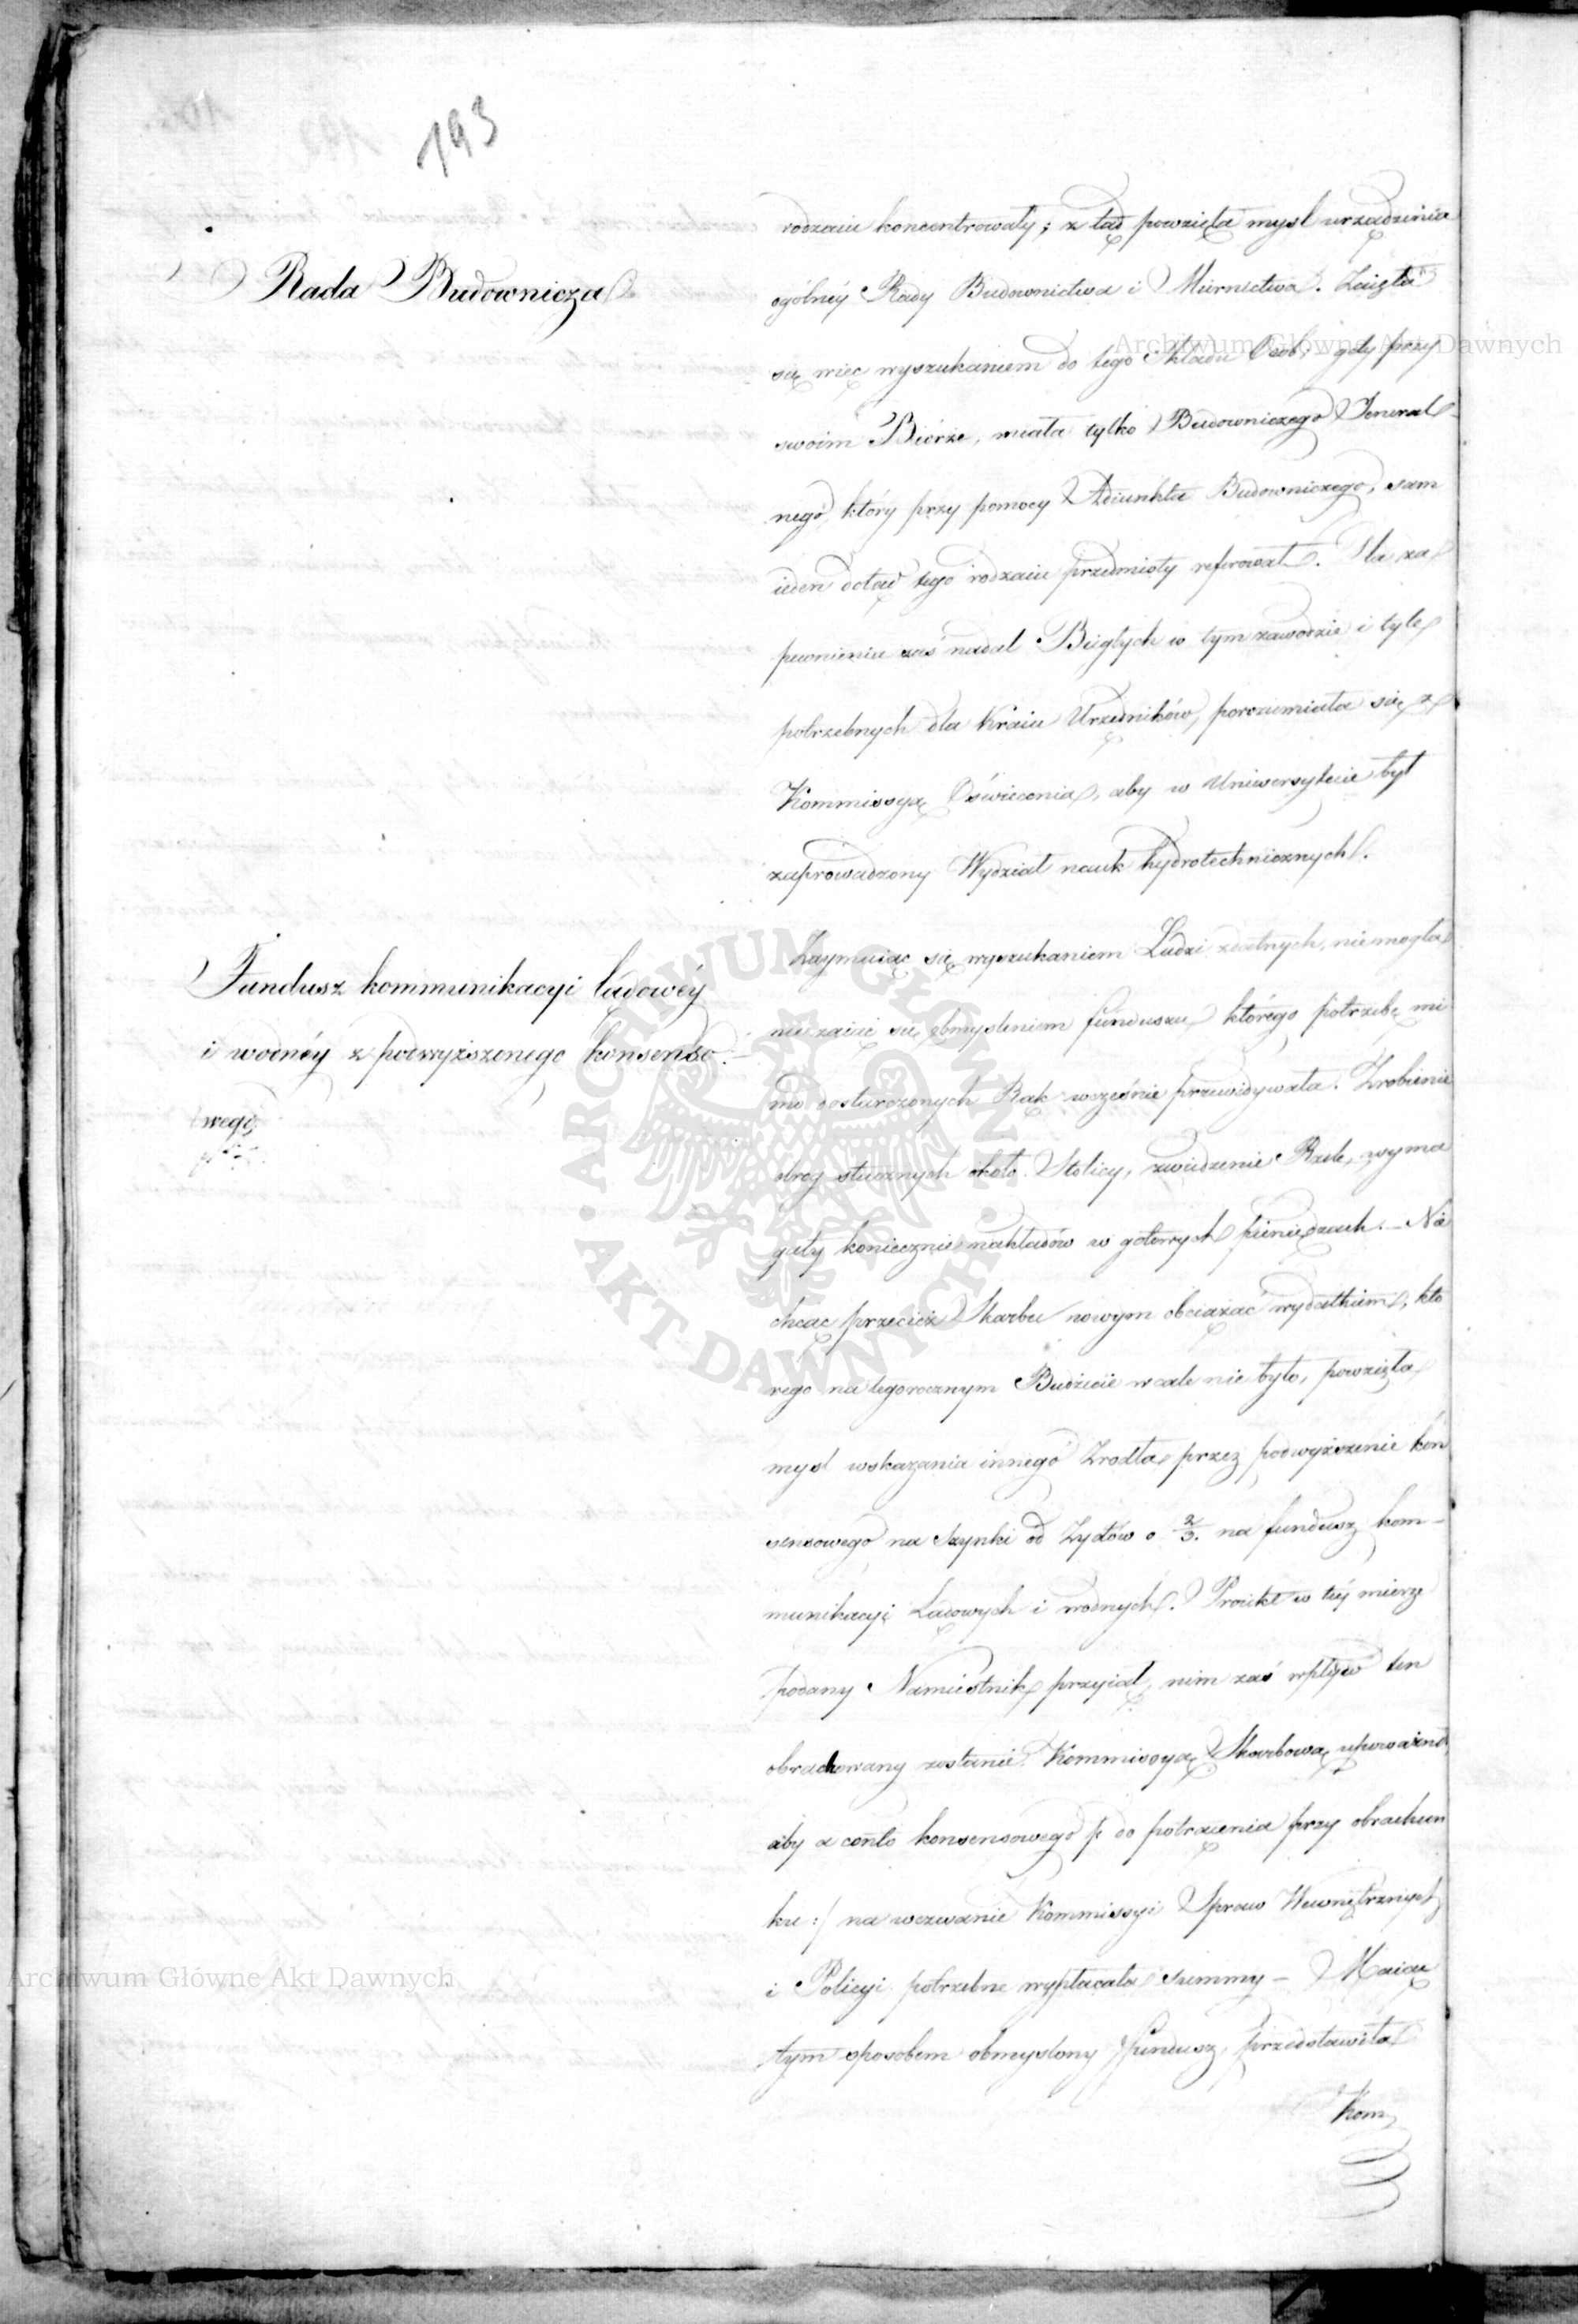 193
Rada Budownicza
rodzaiu koncentrowały; z tąd powzięta mysl urządzenia
ogólnéy Rady Budownictwa i Miernictwa. Zaięła
się więc wyszukaniem do tego Składu Osob, – gdy przy
swoim Biórze, miała tylko Budowniczego Jeneral-
nego, który przy pomocy Adiunkta Budowniczego, sam
ieden dotąd tego rodzaiu przedmioty referował. Dla za
pewnienia zaś nadal Biegłych w tym zawodzie i tyle
potrzebnych dla Kraiu Urzędników, porozumiała się z
Kommissyą Oświecenia, aby w Uniwersytecie był
zaprowadzony Wydział nauk hydrotechnicznych.
Fundusz kommunikacyi lądowéy
i wodnéy z podwyższonego konsenso-
wego.
Zaymuiąc się wyszukaniem Ludzi zdatnych, niemogła
nie zaiąć się obmysleniem funduszu, którego potrzebę mi
mo dostarczonych Rąk wcześnie przewidywała. Zrobienie
dróg sztucznych około Stolicy, zwiedzenie Rzek, wyma
gały koniecznie nakładów w gotowych pieniędzach. – Nie
chcąc przecież Skarbu nowym obciążać wydatkiem, któ
rego na tegorocznym Budżecie wcale nie było, powzięła
mysl wskazania innego Zrodła, przez podwyższenie kon
sensowego na Szynki od Zydów o 2/3. na fundusz kom-
munikacyi Lądowych i wodnych. Proiekt w téy mierze
podany Namiestnik przyiął, nim zaś wpływ ten
obrachowany zostanie, Kommissyą Skarbową upoważnił,
aby a conto konsensowego /: do potrącenia przy obrachun
ku :/ na wezwanie Kommissyi Spraw Wewnętrznych
i Policyi potrzebne wypłacała summy – Maiąc
tym sposobem obmyslony fundusz, przedstawiła
Kom
Archiwum Główne Akt Dawnych
ARCHIWUM GŁÓWNE • AKT DAWNYCH •
Archiwum Główne Akt Dawnych